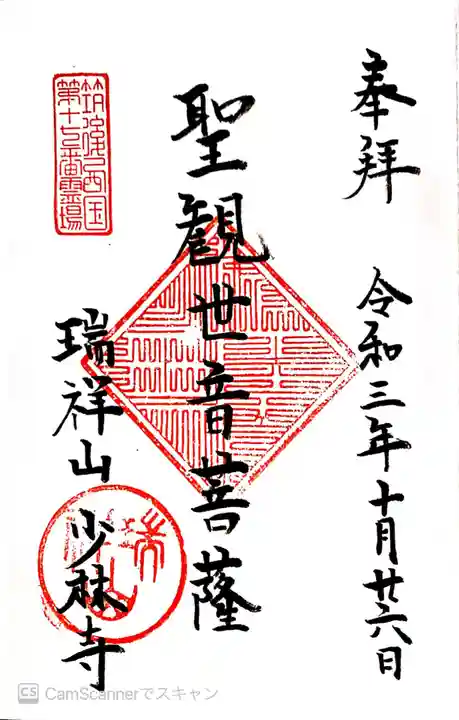 奉拝
令和三年十月廿六日
聖観世音菩薩
筑後西国
第十七番霊場
瑞祥山少林寺
CS CamScannerでスキャン